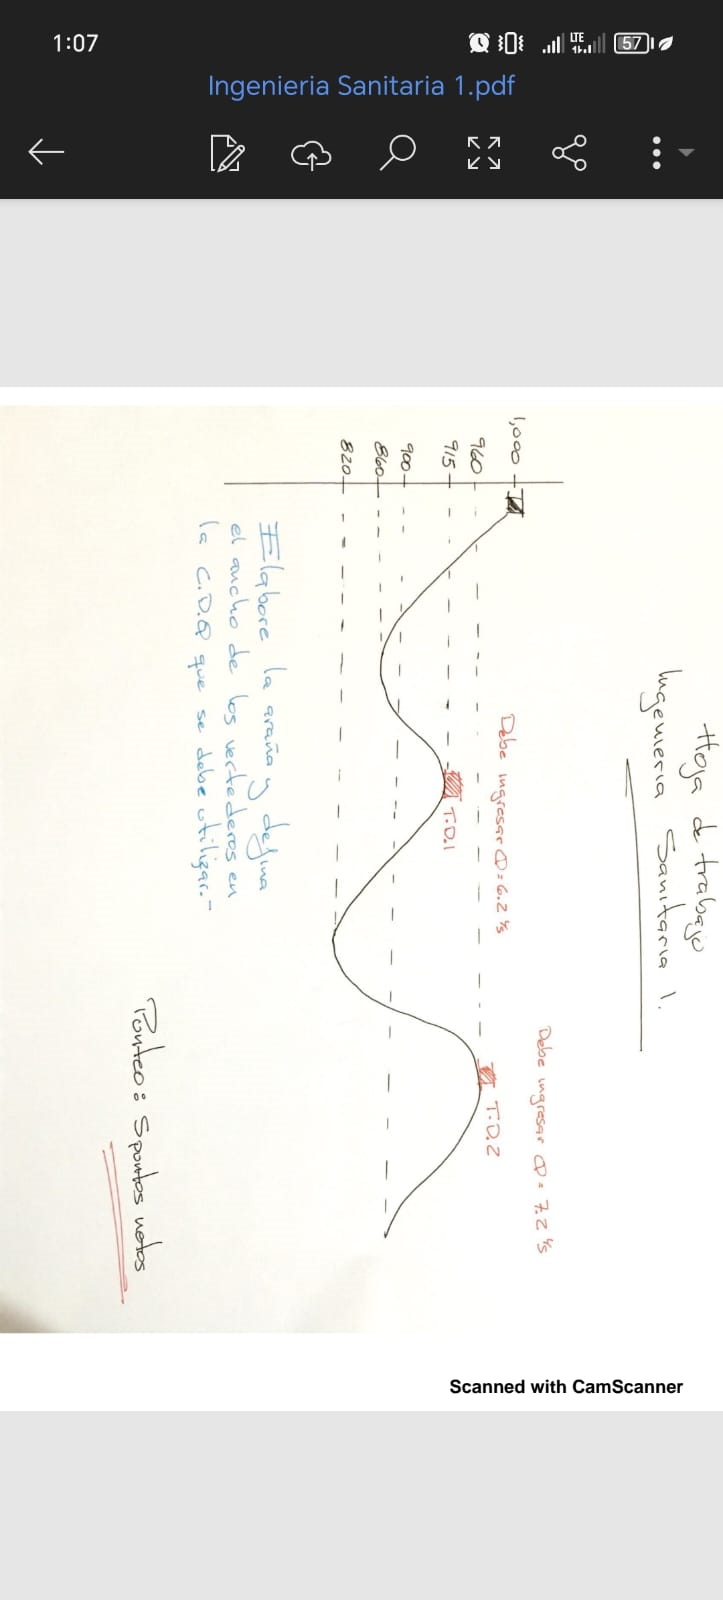 1:07
LTE
57
Ingenieria Sanitaria 1.pdf
Hoja de trabajo
Ingeniería Sanitaria 1.
Debe ingresar Q = 7.2 l/s
Debe ingresar Q = 6.2 l/s
1,000
960
915
900
860
820
T.D.1
T.D.2
Elabore la araña y defina
el ancho de los vertederos en
la C.D.Q que se debe utilizar.-
Punteo: 5 puntos netos
Scanned with CamScanner